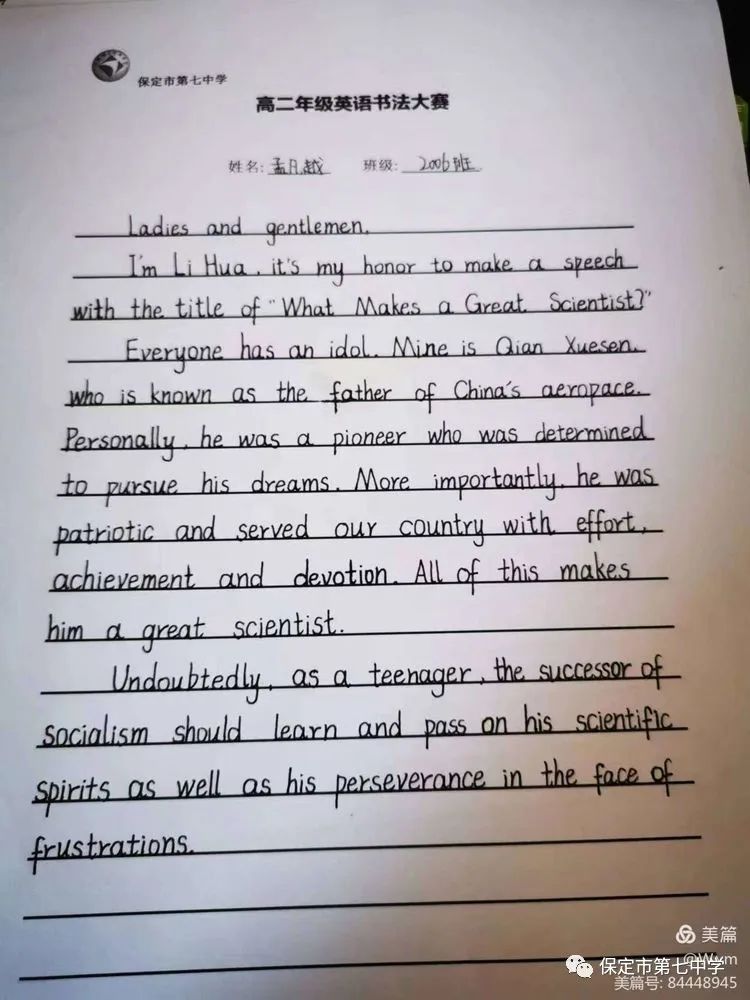 保定市第七中学
高二年级英语书法大赛
姓名: 孟月越 班级: 2006班
Ladies and gentlemen.
I'm Li Hua, it's my honor to make a speech
with the title of "What Makes a Great Scientist?"
Everyone has an idol. Mine is Qian Xuesen,
who is known as the father of China's aeropace.
Personally, he was a pioneer who was determined
to pursue his dreams. More importantly, he was
patriotic and served our country with effort,
achievement and devotion. All of this makes
him a great scientist.
Undoubtedly, as a teenager, the successor of
socialism should learn and pass on his scientific
spirits as well as his perseverance in the face of
frustrations.
美篇
保定市第七中学
美篇号: 84448945